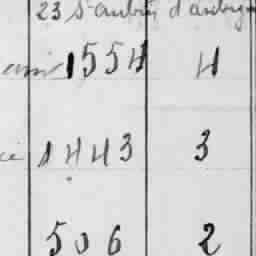 23 St aubin d'aubigné
1554 4
1443 3
506 2